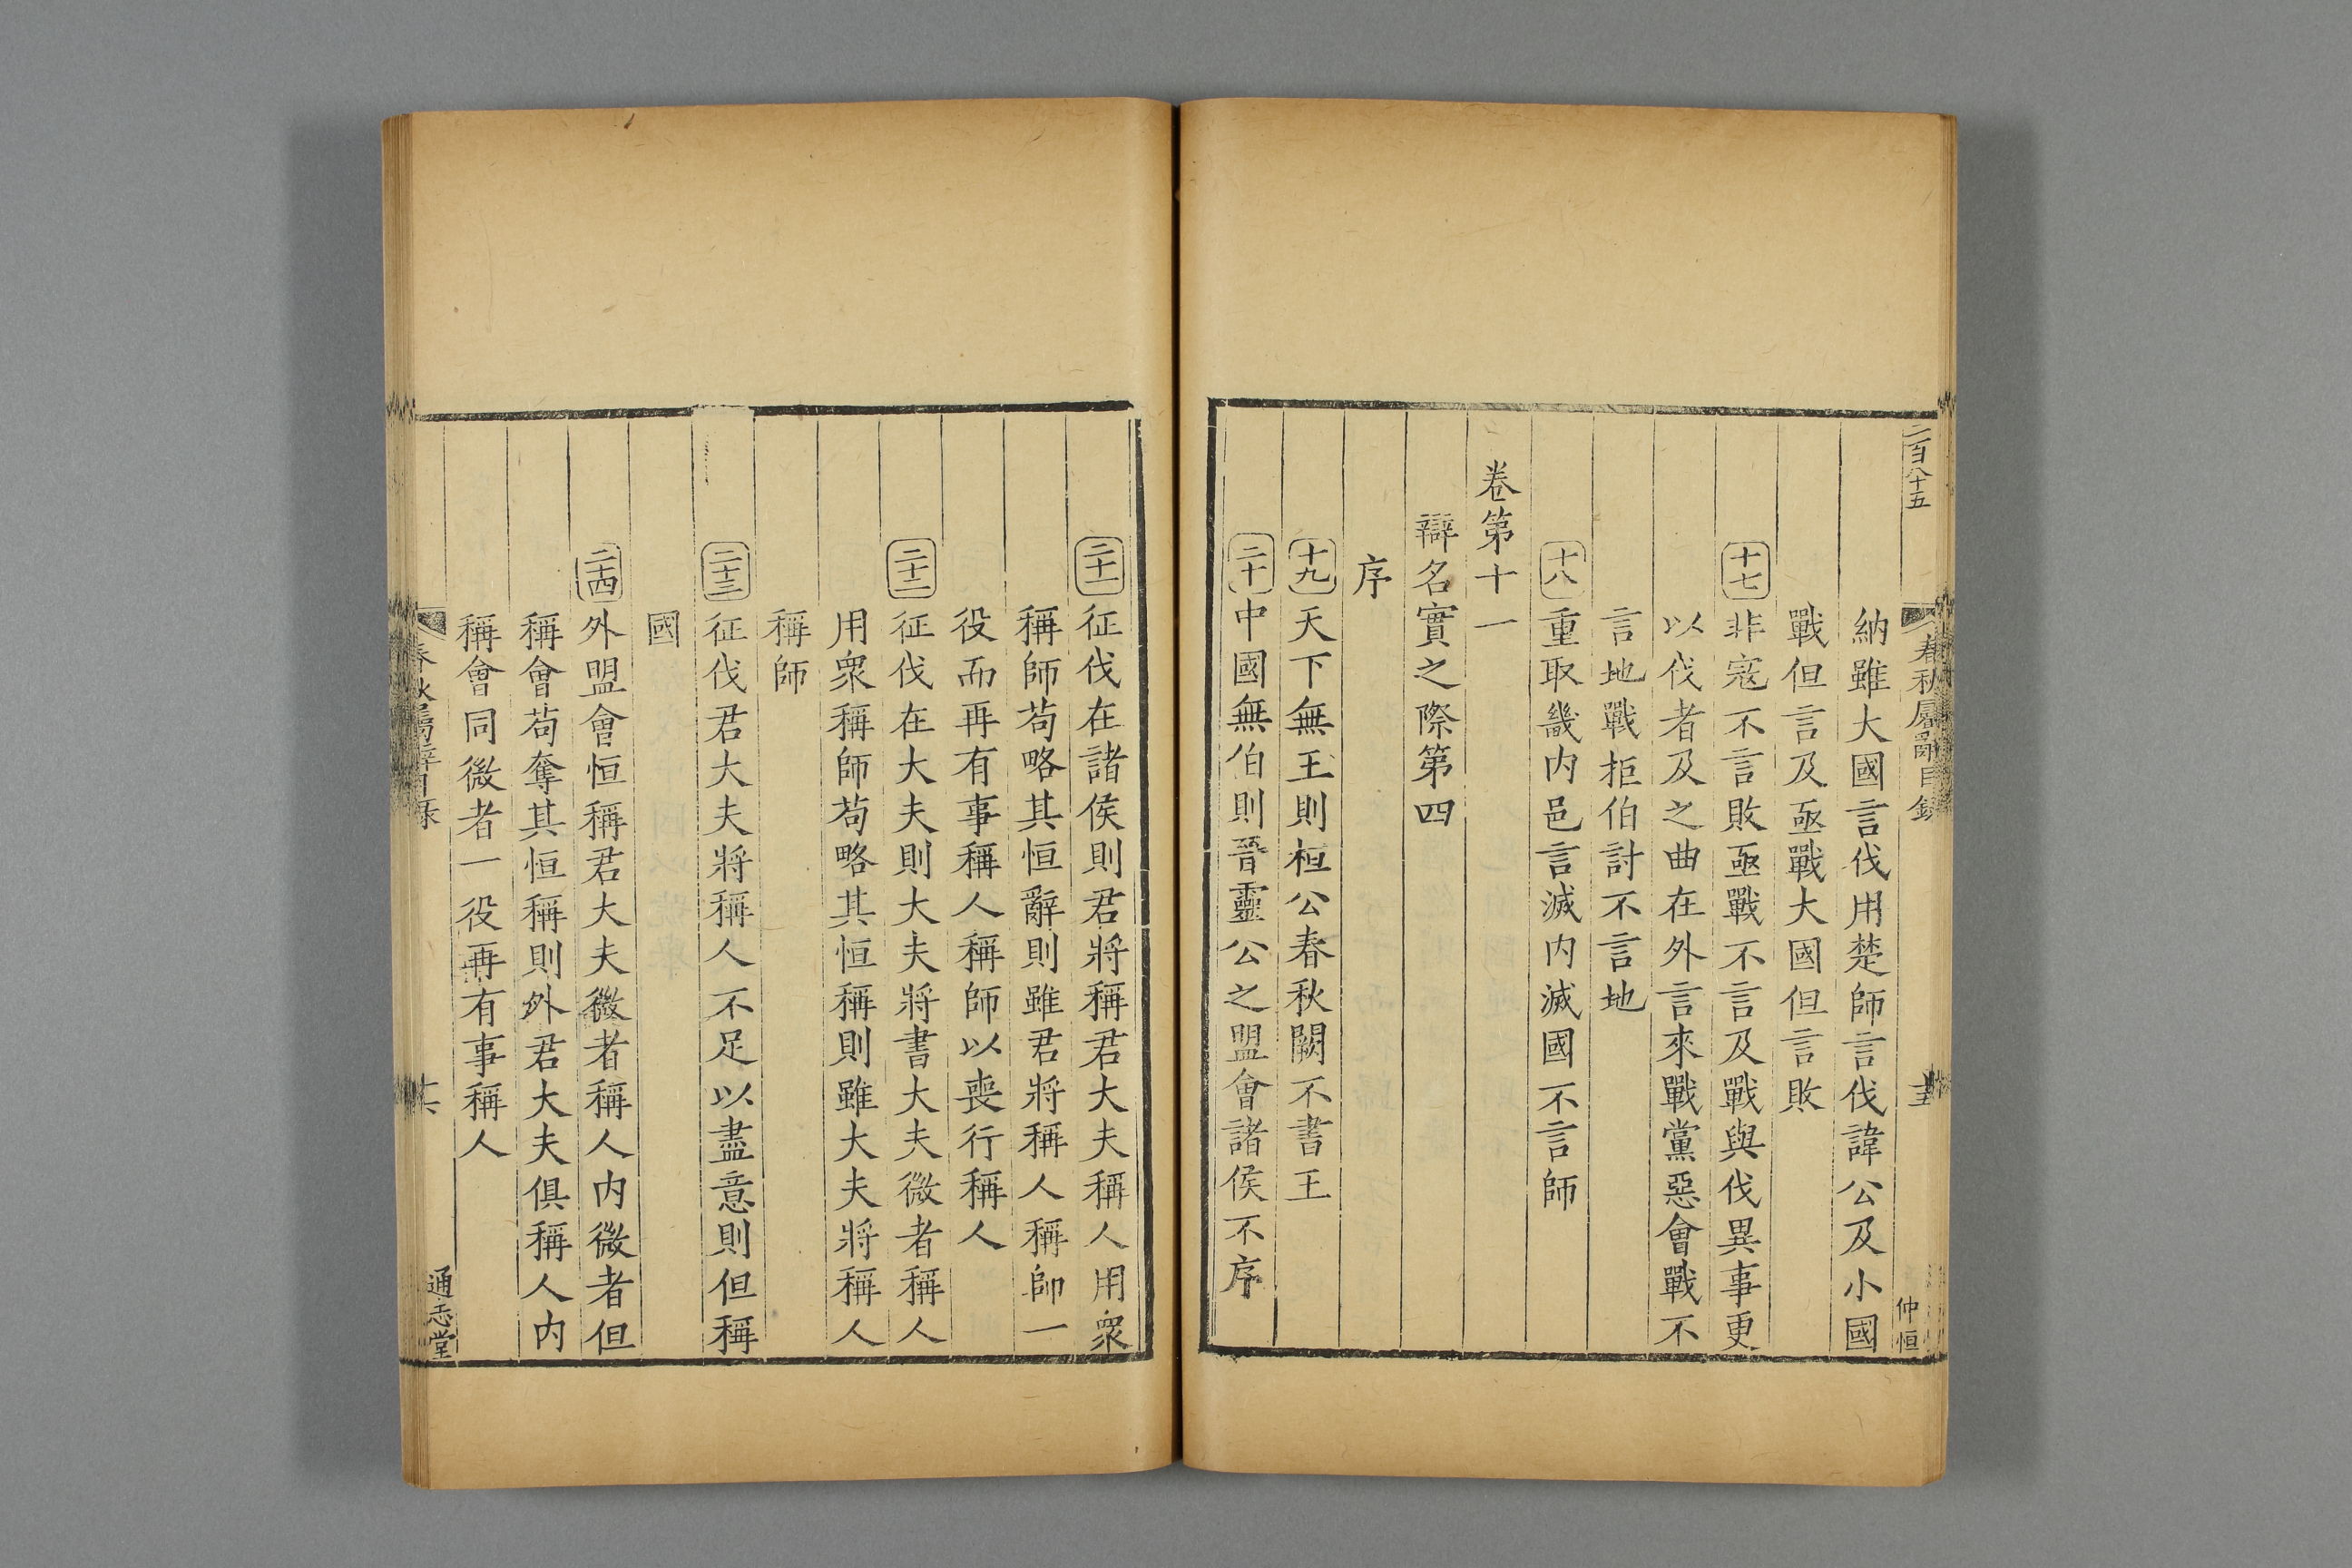 二百八十五
春秋屬辭目錄
仲恒
納雖大國言伐用楚師言伐諱公及小國
戰但言及亟戰大國但言敗
十七 非寇不言敗亟戰不言及戰與伐異事更
以伐者及之曲在外言來戰黨惡會戰不
言地戰拒伯討不言地
十八 重取畿内邑言滅内滅國不言師
卷第十一
辯名實之際第四
序
十九 天下無王則桓公春秋闕不書王
二十 中國無伯則晉靈公之盟會諸侯不序
二十一 征伐在諸侯則君將稱君大夫稱人用衆
稱師苟略其恒辭則雖君將稱人稱師一
役而再有事稱人稱師以喪行稱人
二十二 征伐在大夫則大夫將書大夫微者稱人
用衆稱師苟略其恒稱則雖大夫將稱人
稱師
二十三 征伐君大夫將稱人不足以盡意則但稱
國
二十四 外盟會恒稱君大夫微者稱人内微者但
稱會苟奪其恒稱則外君大夫俱稱人内
稱會同微者一役再有事稱人
春秋屬辭目錄
通志堂